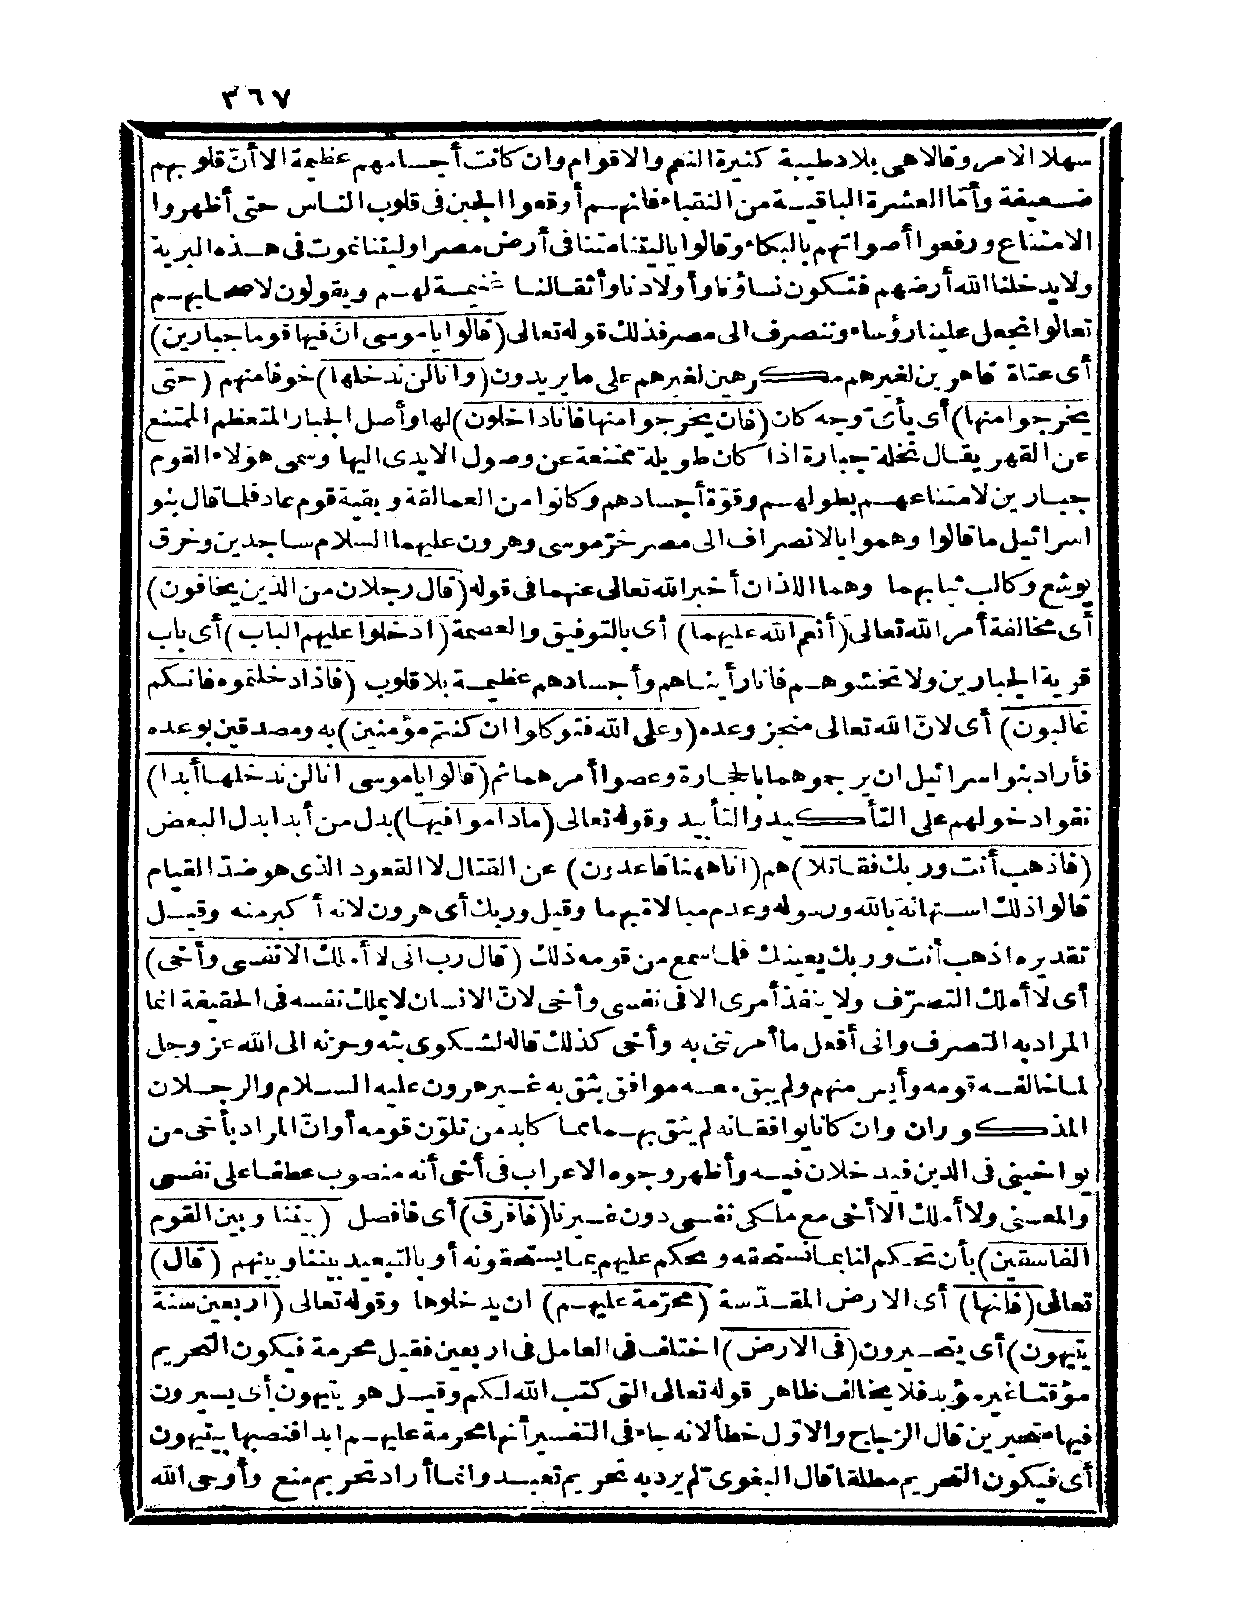 ٣٦٧
سهلا الامر وقالا هى بلاد طيبة كثيرة النعم والاقوام وان كانت أجسامهم عظيمة الا أنّ قلوبهم
ضعيفة وأمّا العشرة الباقية من النقباء فانهم أوقعوا الجبن فى قلوب الناس حتى أظهروا
الامتناع ورفعوا أصواتهم بالبكاء وقالوا ياليتنا متنا فى أرض مصر أوليتنا نموت فى هذه البرية
ولا يدخلنا الله أرضهم فتكون نساؤنا وأولادنا وأثقالنا غنيمة لهم ويقولون لاصحابهم
تعالوا نجعل علينا رؤساء وننصرف الى مصر فذلك قوله تعالى (قالوا ياموسى انّ فيها قوما جبارين)
أى عتاة قاهرين لغيرهم مكرهين لغيرهم على ما يريدون (وانا لن ندخلها) خوفا منهم (حتى
يخرجوا منها) أى بأىّ وجه كان (فان يخرجوا منها فانا داخلون) لها وأصل الجبار المتعظم الممتنع
عن القهر يقال نخلة جبارة اذا كان طويلة ممتنعة عن وصول الايدى اليها وسمى هؤلاء القوم
جبارين لامتناعهم بطولهم وقوّة أجسادهم وكانوا من العمالقة وبقية قوم عاد فلما قال بنو
اسرائيل ما قالوا وهموا بالانصراف الى مصر خرّ موسى وهرون عليهما السلام ساجدين وخرق
يوشع وكالب ثيابهما وهما اللذان أخبر الله تعالى عنهما فى قوله (قال رجلان من الذين يخافون)
أى مخالفة أمر الله تعالى (أنعم الله عليهما) أى بالتوفيق والعصمة (ادخلوا عليهم الباب) أى باب
قرية الجبارين ولا تخشوهم فانا رأيناهم وأجسادهم عظيمة بلا قلوب (فاذا دخلتموه فانكم
غالبون) أى لانّ الله تعالى منجز وعده (وعلى الله فتوكلوا ان كنتم مؤمنين) به ومصدقين بوعده
فأراد بنو اسرائيل ان يرجموهما بالحجارة وعصوا أمرهما ثم (قالوا ياموسى انا لن ندخلها أبدا)
نفوا دخولهم على التأكيد والتأبيد وقوله تعالى (ماداموا فيها) بدل من أبدا بدل البعض
(فاذهب أنت وربك فقاتلا) هم (انا ههنا قاعدون) عن القتال لا القعود الذى هو ضدّ القيام
قالوا ذلك استهانة بالله ورسوله وعدم مبالاة بهما وقيل وربك أى هرون لانه أكبر منه وقيل
تقديره اذهب أنت وربك يعينك فلما سمع من قومه ذلك (قال رب انى لا أملك الا نفسى وأخى)
أى لا أملك التصرّف ولا ينفذ أمرى الا فى نفسى وأخى لانّ الانسان لا يملك نفسه فى الحقيقة انما
المراد به التصرف وانى أفعل ما أمرتنى به وأخى كذلك قاله لشكوى بثه وحزنه الى الله عز وجل
لما خالفه قومه وأيس منهم ولم يبق معه موافق يثق به غير هرون عليه السلام والرجلان
المذكوران وان كانا يوافقانه لم يثق بهما مما كابد من تلوّن قومه أو انّ المراد بأخى من
يواخينى فى الدين فيدخلان فيه وأظهر وجوه الاعراب فى أخى أنه منصوب عطفا على نفسى
والمعنى ولا أملك الا أخى مع ملكى نفسى دون غيرنا (فافرق) أى فافصل (بيننا وبين القوم
الفاسقين) بأن تحكم لنا بما نستحقه وتحكم عليهم بما يستحقونه أو بالتبعيد بيننا وبينهم (قال)
تعالى (فانها) أى الارض المقدّسة (محرّمة عليهم) ان يدخلوها وقوله تعالى (أربعين سنة
يتيهون) أى يتحيرون (فى الارض) اختلف فى العامل فى أربعين فقيل محرمة فيكون التحريم
مؤقتا غير مؤبد فلا يخالف ظاهر قوله تعالى التى كتب الله لكم وقيل هو يتيهون أى يسيرون
فيها متحيرين قال الزجاج والاوّل خطأ لانه جاء فى التفسير أنها محرمة عليهم ابدا فنصبها بيتيهون
أى فيكون التحريم مطلقا قال البغوىّ لم يرد به تحريم تعبد وانما أراد تحريم منع وأوحى الله